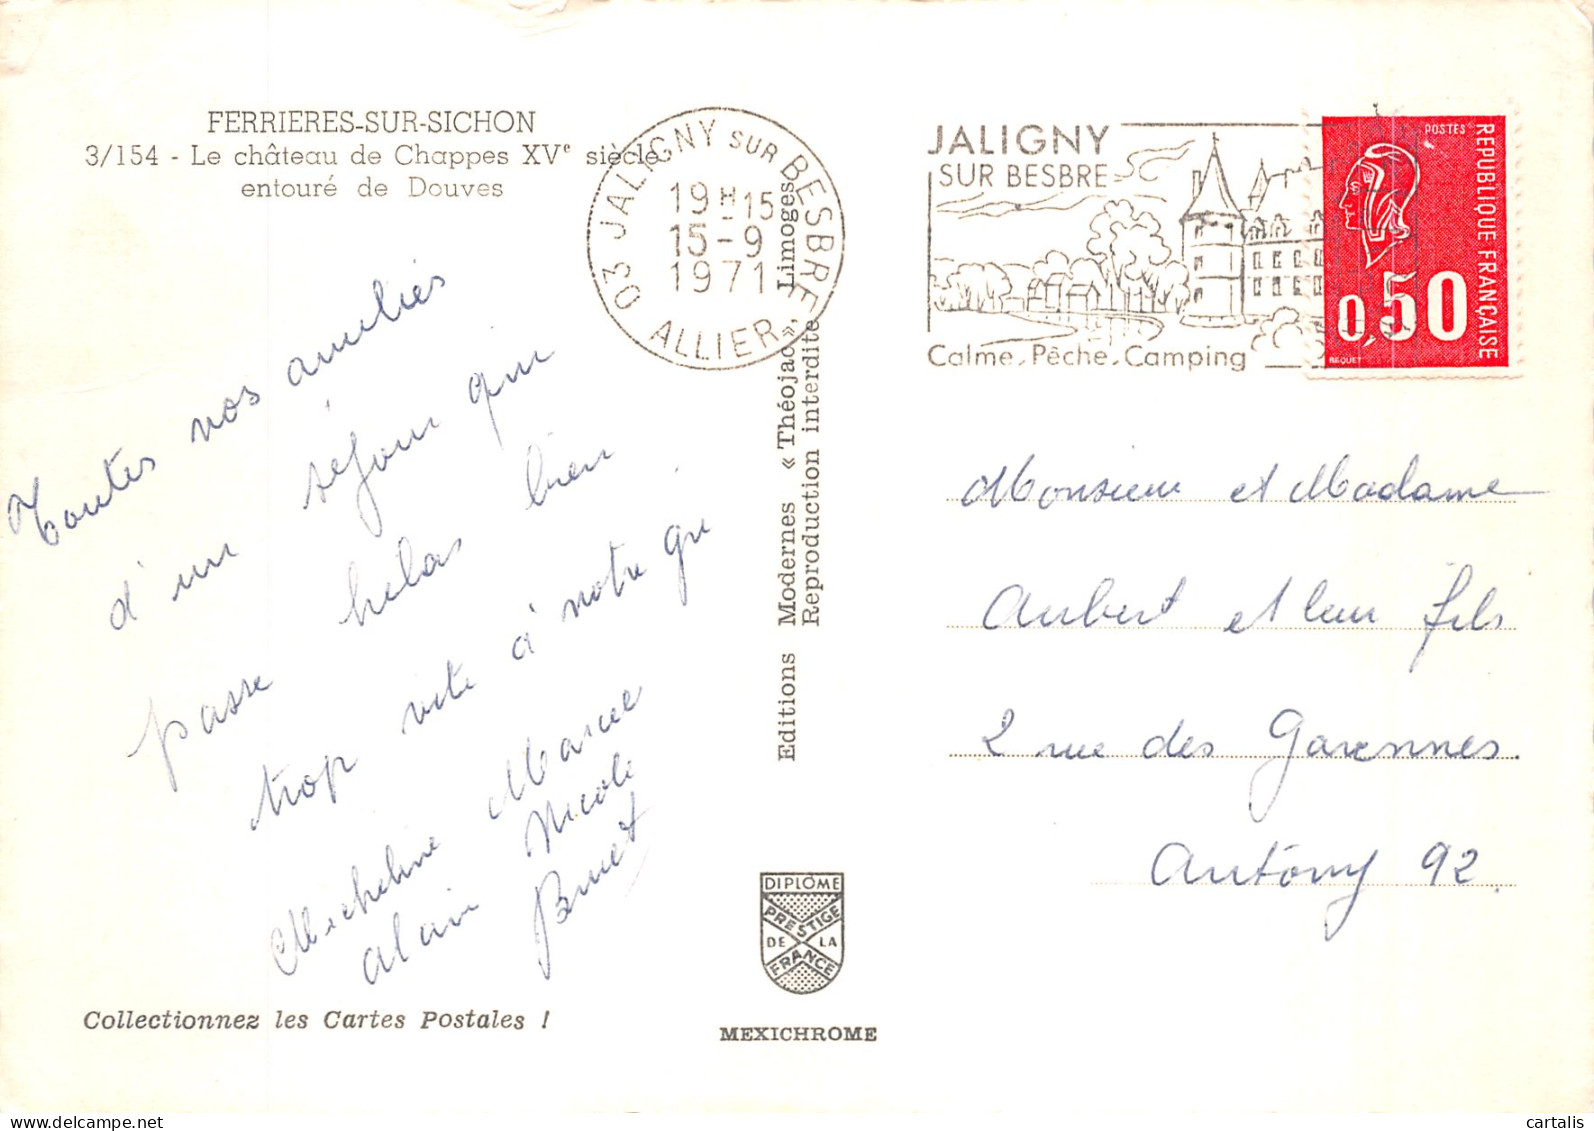 FERRIERES-SUR-SICHON
3/154 - Le château de Chappes XVe siècle
entouré de Douves
Toutes nos amitiés
d'un séjour qui
passe helas bien
trop vite à notre gré
Micheline Marcel
Alain Nicole
Brunet
Collectionnez les Cartes Postales !
03 JALIGNY SUR BESBRE
19H-15
15-9
1971
ALLIER
Editions Modernes « Théojac », Limoges
Reproduction interdite
DIPLÔME
PRESTIGE
DE LA
FRANCE
MEXICHROME
JALIGNY
SUR BESBRE
Calme, Pêche, Camping
POSTES
REPUBLIQUE FRANÇAISE
0,50
BEQUET
Monsieur et Madame
Aubert et leur fils
2 rue des Garennes.
Antony 92.
delcampe.net
cartalis